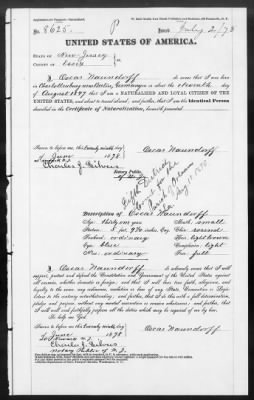 No. 8625. P Issued July 2/78
UNITED STATES OF AMERICA.
STATE OF New Jersey
COUNTY OF Essex
I Oscar Naundorff do swear that I was born
in Germany on or about the eleventh day
of August 1847 that I am a NATURALIZED AND LOYAL CITIZEN OF THE
UNITED STATES, and about to travel abroad; and further, that I am the Identical Person
described in the Certificate of Naturalization, herewith presented.
Sworn to before me, this twenty ninth day
of June 1878
Oscar Naundorff
Notary Public
Description of Oscar Naundorff
Age: thirty one years
Mouth: small
Stature: 5 feet
Chin: round
Forehead: ordinary
Hair: light brown
Eyes: blue
Complexion: light
Nose: ordinary
Face: full
I, Oscar Naundorff do solemnly swear that I will
support, protect and defend the Constitution and Government of the United States against
all enemies, whether domestic or foreign; and that I will bear true faith, allegiance, and
loyalty to the same, any ordinance, resolution or law of any State, Convention or Legis-
lature to the contrary notwithstanding; and further, that I do this with a full determination,
pledge and purpose, without any mental reservation or evasion whatsoever; and further, that
I will well and faithfully perform all the duties which may be required of me by law.
So help me God.
Sworn to before me this twenty ninth day
of June 1878
Oscar Naundorff
Notary Public N. J.